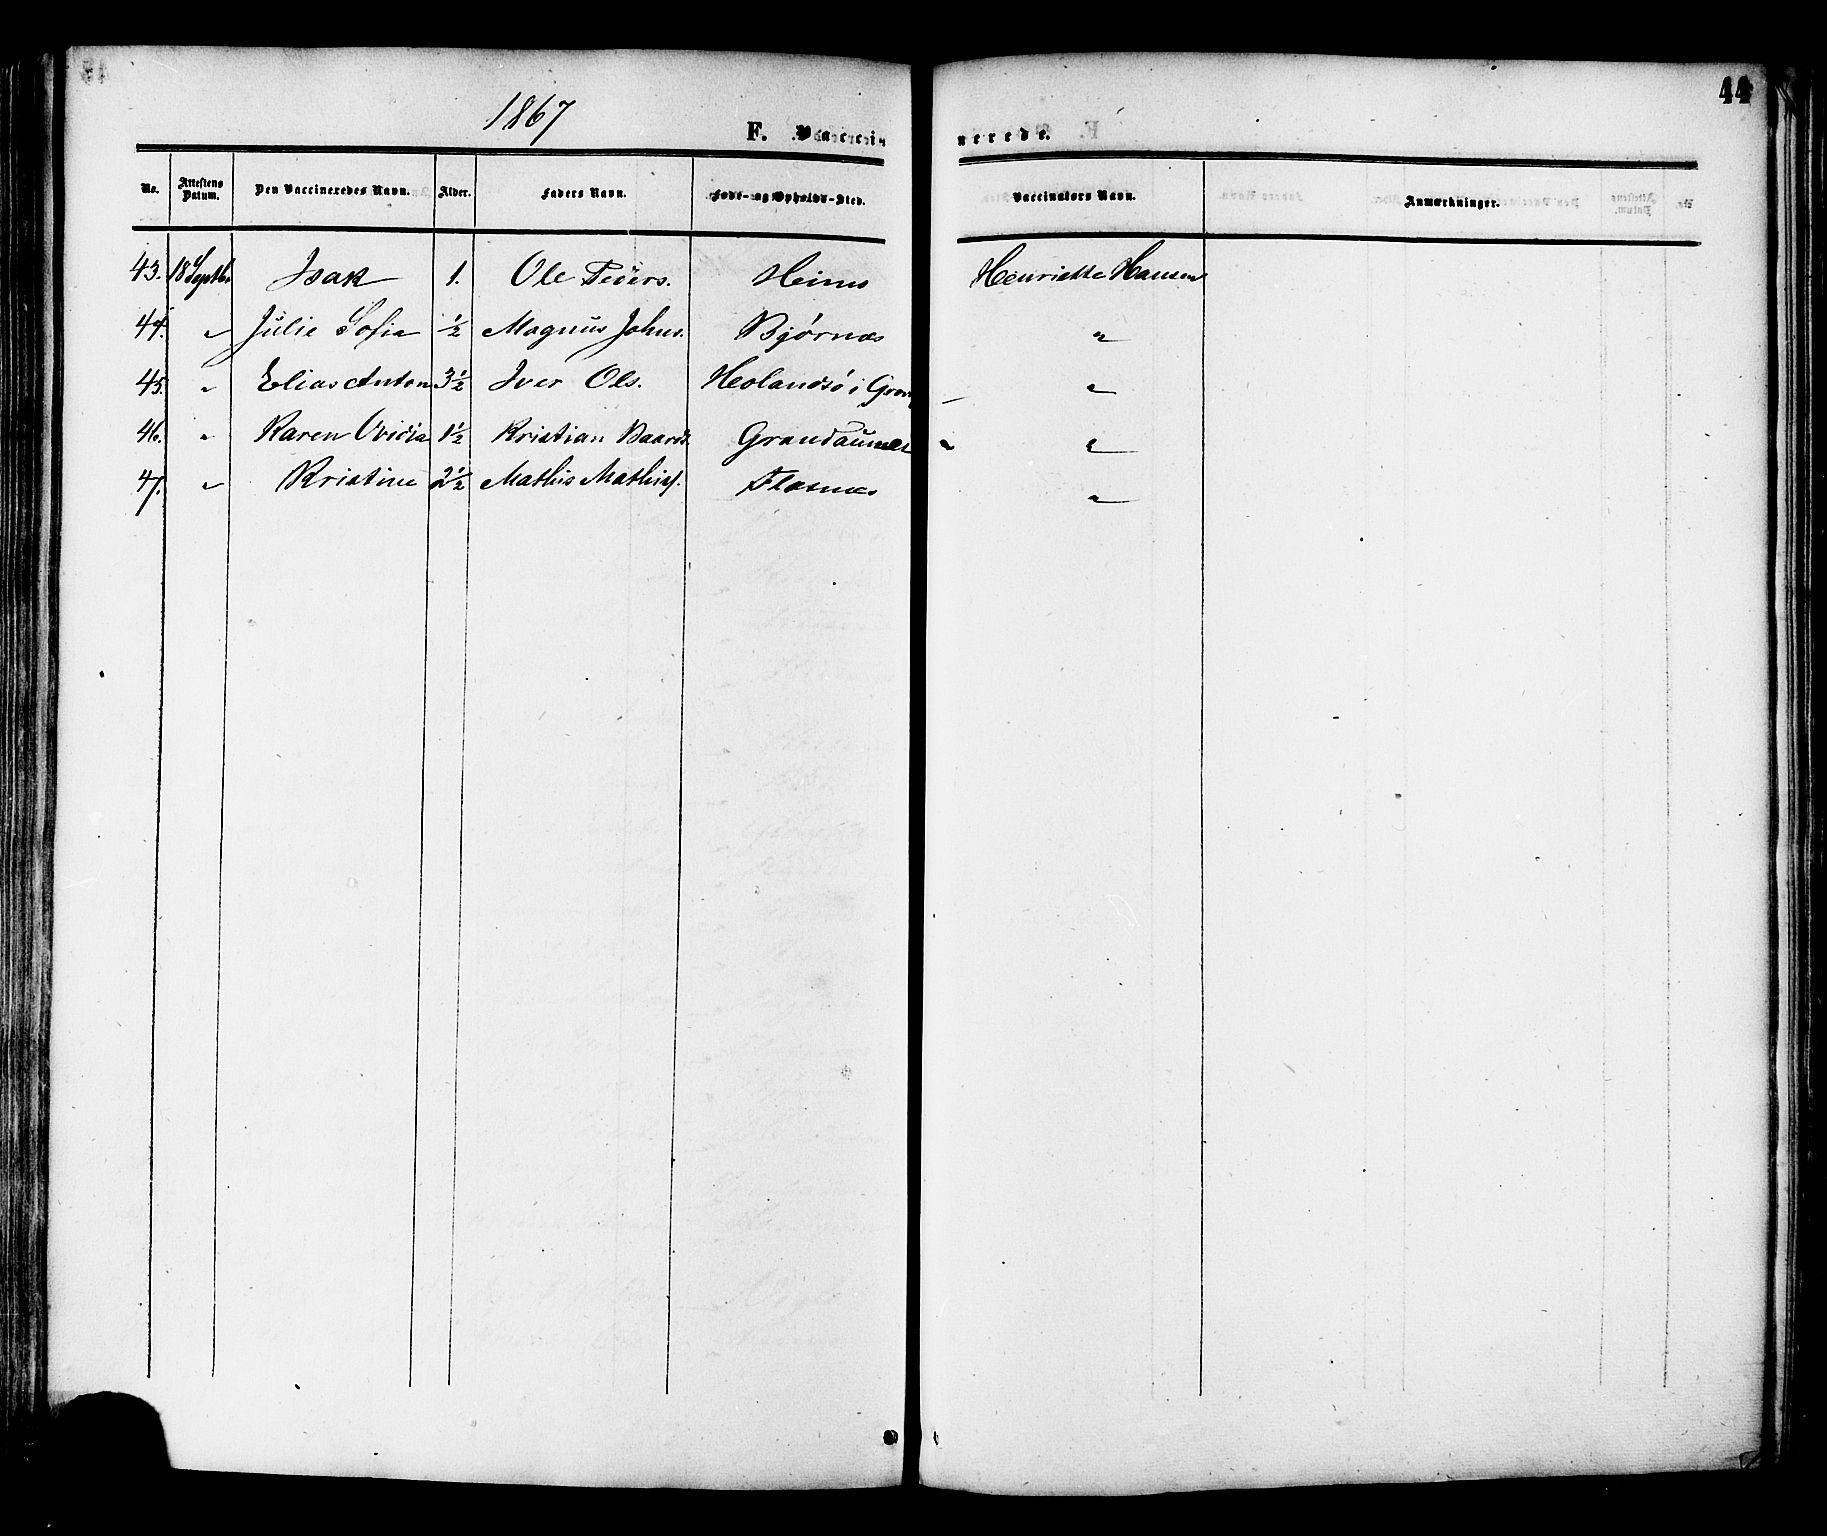 44
1867
F. Vaccinerede.
No. Attestens Datum. Den Vaccineredes Navn. Alder. Faders Navn. Føde- og Opholds-Sted. Vaccinators Navn. Anmærkninger.
43. 18 Septbr Isak 1. Ole Peders. Heims Henriette Hansen
44. " Julie Sofia ½ Magnus Johns. Bjørnæs "
45. " Elias Anton 3½ Iver Ols. Holandsø i Grong "
46. " Karen Ovidia 1½ Kristian Baards. "
47. " Kristine 2½ Mathis Mathiss. Flasnæs "